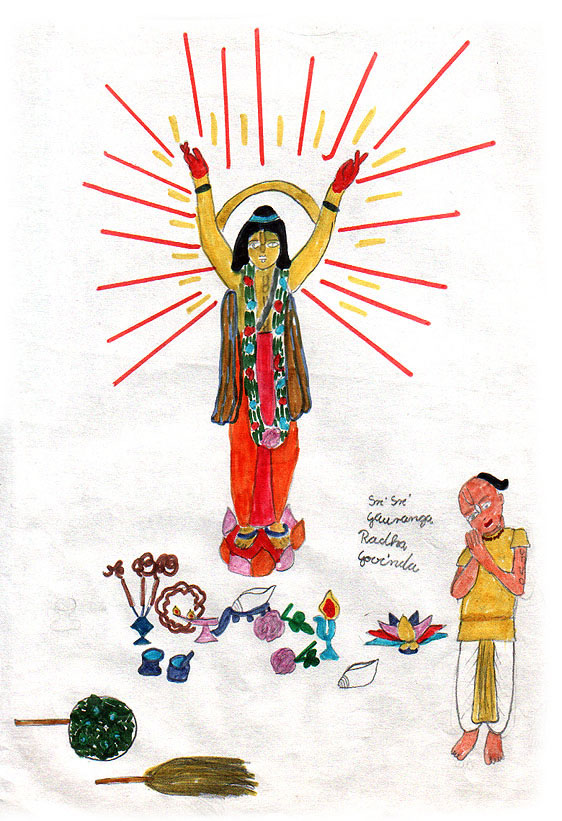 Sri Sri
Gauranga
Radha
Govinda